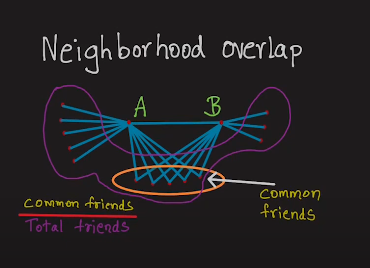 Neighborhood overlap
A
B
Common friends
Total friends
Common
friends